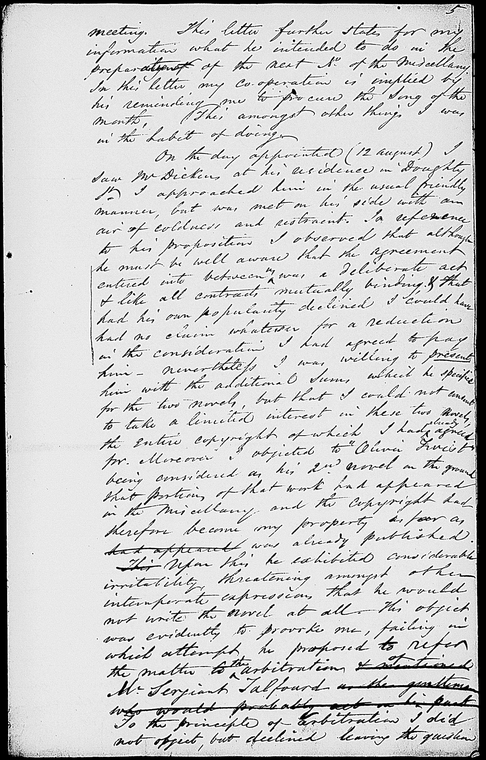 5
meeting. This letter further states for my
information what he intended to do in the
preparation of the next No. of the Miscellany
In this letter my co-operation is implied by
his reminding me to procure the Song of the
Month, This amongst other things I was
in the habit of doing.
On the day appointed (12 August) I
saw Mr Dickens at his residence in Doughty
St. I approached him in the usual friendly
manner, but was met on his side with an
air of coldness and restraint. In reference
to his propositions I observed that although
he must be well aware that the agreement
entered into between us was a deliberate act
& like all contracts mutually binding, & that
had his own popularity declined I could have
had no claim whatever for a reduction
in the consideration I had agreed to pay
him - nevertheless I was willing to present
him with the additional Sums which he specified
for the two novels, but that I could not consent
to take a limited interest in these two novels,
the entire copyright of which I had already agreed
for. Moreover I objected to "Oliver Twist"
being considered as his 2nd novel on the ground
that portions of that work had appeared
in the Miscellany and the copyright had
therefore become my property as far as
had appeared was already published.
This Upon this he exhibited considerable
irritability, threatening amongst other
intemperate expressions that he would
not write the novel at all - His object
was evidently to provoke me, failing in
which attempt, he proposed to refer
the matter to the arbitration of & mentioned
Mr Sergeant Talfourd as the gentleman
who would probably act on his part
To the principle of arbitration I did
not object, but declined leaving the question